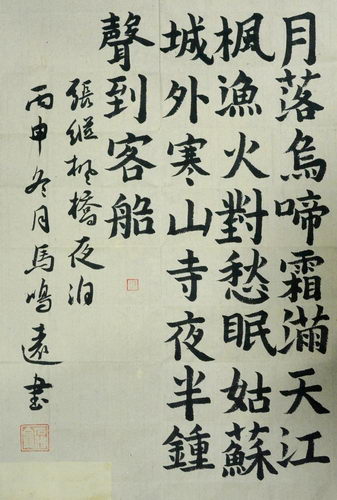 月落烏啼霜滿天江
楓漁火對愁眠姑蘇
城外寒山寺夜半鍾
聲到客船
張繼楓橋夜泊
丙申冬月馬鳴遠書